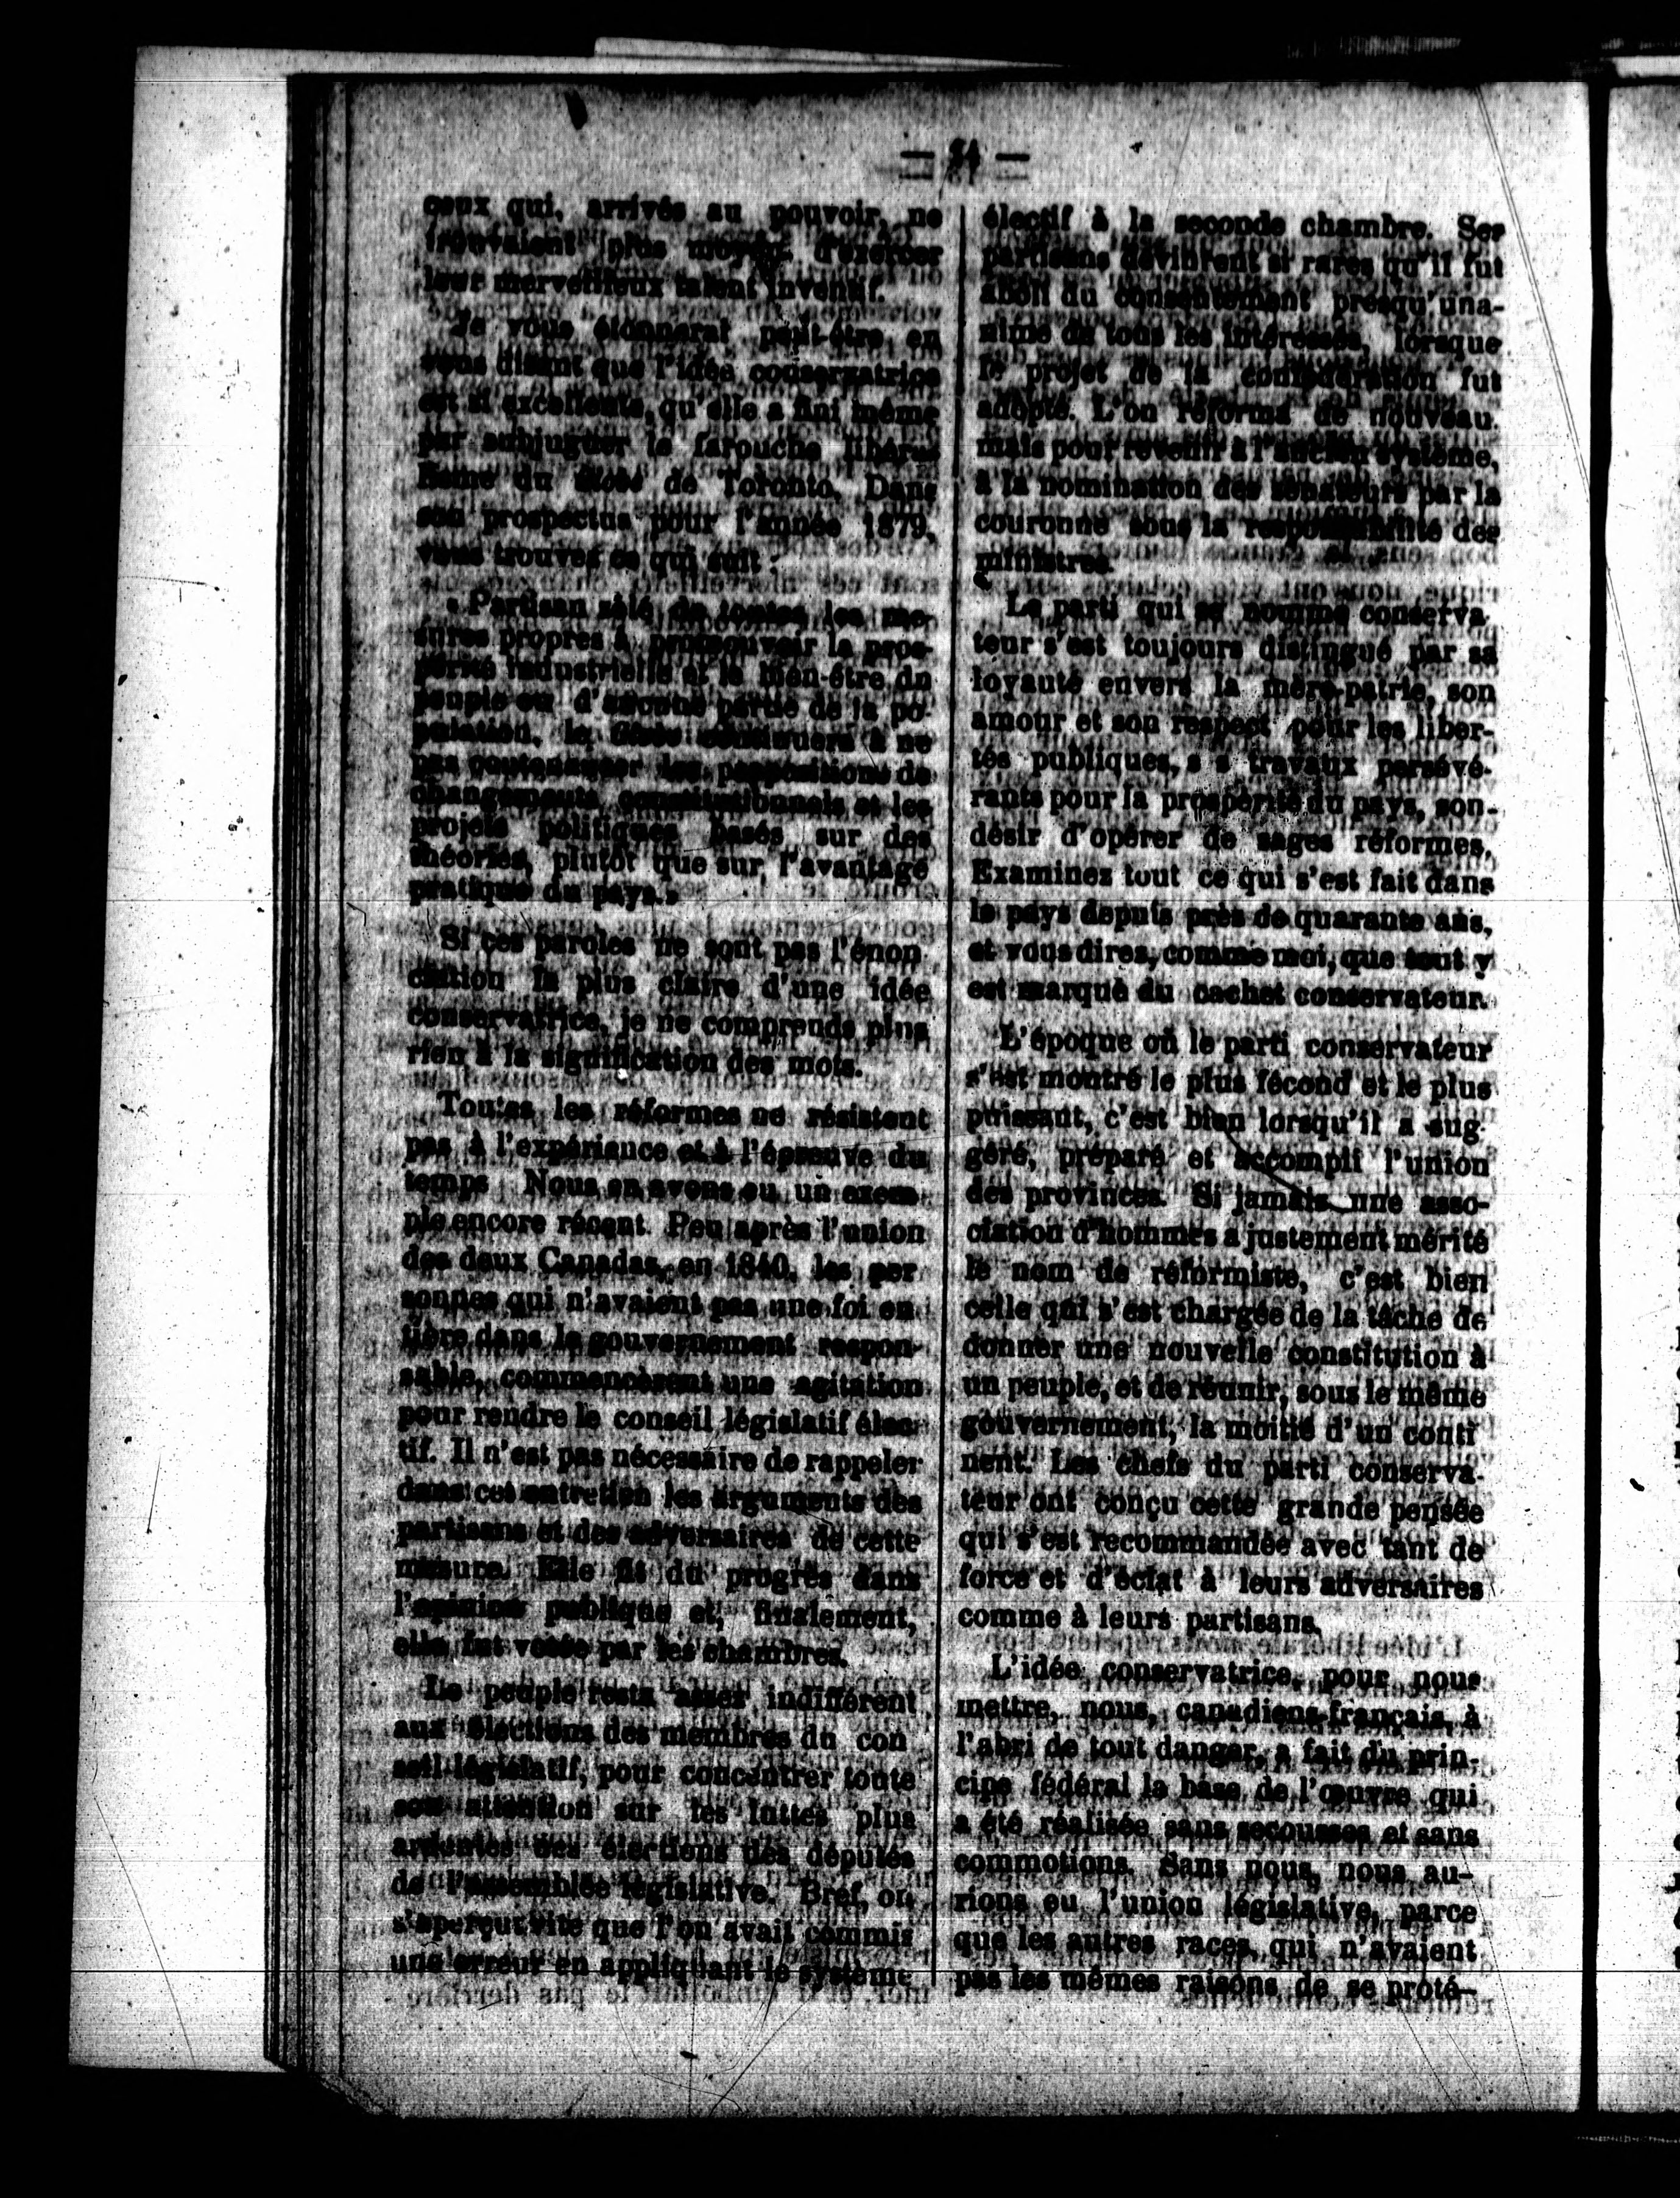 — 54 —
ceux qui, arrivés au pouvoir, ne
trouvaient plus moyen d'exercer
leur merveilleux talent inventif.
Je vous étonnerai peut-être en
vous disant que l'idée conservatrice
est si excellente, qu'elle a fini même
par subjuguer le farouche libéra-
lisme du Globe de Toronto. Dans
son prospectus pour l'année 1879,
vous trouvez ce qui suit :
« Partisan zélé de toutes les me-
sures propres à promouvoir la pros-
périté industrielle et le bien-être du
peuple ou d'aucune partie de la po-
pulation, le Globe continuera à ne
pas contenancer les propositions de
changements constitutionnels et les
projets politiques basés sur des
théories, plutôt que sur l'avantage
pratique du pays.»
Si ces paroles ne sont pas l'énon
ciation la plus claire d'une idée
conservatrice, je ne comprends plus
rien à la signification des mots.
Toutes les réformes ne résistent
pas à l'expérience et à l'épreuve du
temps Nous en avons eu un exem
ple encore récent. Peu après l'union
des deux Canadas, en 1840, les per
sonnes qui n'avaient pas une foi en
tière dans le gouvernement respon-
sable, commencèrent une agitation
pour rendre le conseil législatif élec
tif. Il n'est pas nécessaire de rappeler
dans cet entretien les arguments des
partisans et des adversaires de cette
mesure. Elle fit du progrès dans
l'opinion publique et, finalement,
elle fut votée par les chambres.
Le peuple resta assez indifférent
aux élections des membres du con
seil législatif, pour concentrer toute
son attention sur les luttes plus
ardentes des élections des députés
de l'assemblée législative. Bref, on
s'aperçut vite que l'on avait commis
une erreur en appliquant le système
électif à la seconde chambre. Ses
partisans devinrent si rares qu'il fut
aboli du consentement presqu'una-
nime de tous les intéressés, lorsque
le projet de la confédération fut
adopté. L'on réforma de nouveau,
mais pour revenir à l'ancien système,
à la nomination des sénateurs par la
couronne sous la responsabilité des
ministres.
Le parti qui se nomme conserva
teur s'est toujours distingué par sa
loyauté envers la mère-patrie, son
amour et son respect pour les liber-
tés publiques, s s travaux persévé-
rants pour la prospérité du pays, son
désir d'opérer de sages réformes.
Examinez tout ce qui s'est fait dans
le pays depuis près de quarante ans,
et vous direz, comme moi, que tout y
est marqué du cachet conservateur.
L'époque où le parti conservateur
s'est montré le plus fécond et le plus
puissant, c'est bien lorsqu'il a sug
géré, préparé et accompli l'union
des provinces. Si jamais une asso-
ciation d'hommes a justement mérité
le nom de réformiste, c'est bien
celle qui s'est chargée de la tâche de
donner une nouvelle constitution à
un peuple, et de réunir, sous le même
gouvernement, la moitié d'un conti
nent. Les chefs du parti conserva-
teur ont conçu cette grande pensée
qui s'est recommandée avec tant de
force et d'éclat à leurs adversaires
comme à leurs partisans.
L'idée conservatrice, pour nous
mettre, nous, canadiens-français, à
l'abri de tout danger, a fait du prin-
cipe fédéral la base de l'œuvre qui
a été réalisée sans secousses et sans
commotions. Sans nous, nous au-
rions eu l'union législative, parce
que les autres races, qui n'avaient
pas les mêmes raisons de se proté-